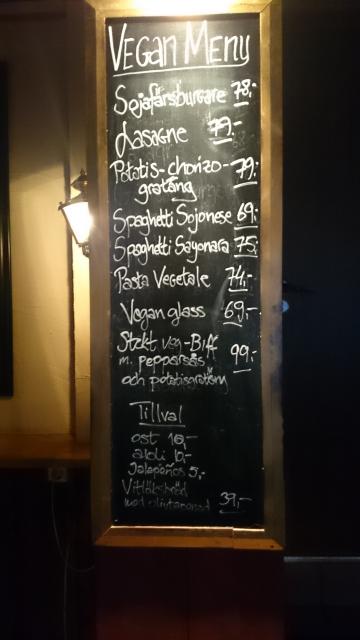 VEGAN MENY
Sojafärsburgare 78:-
Lasagne 79:-
Potatis-chorizo- 79:-
gratäng
Spaghetti Sojonese 69:-
Spaghetti Sayonara 75:-
Pasta Vegetale 74:-
Vegan glass 69:-
Stekt veg-Biff
m. pepparsås 99:-
och potatisgratäng
Tillval
ost 10,-
aioli 10,-
Jalapeños 5,-
Vitlöksbröd
med 39,-